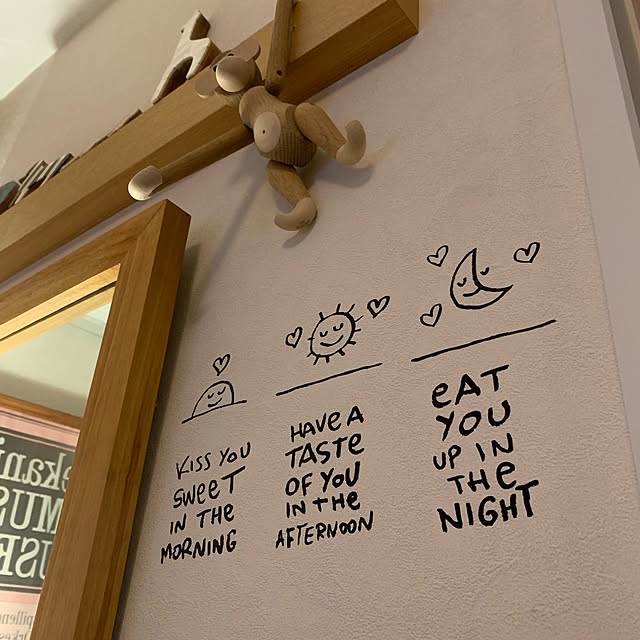 KISS YOU
SWEET
IN THE
MORNING
HAVE A
TASTE
OF YOU
IN THE
AFTERNOON
EAT
YOU
UP IN
THE
NIGHT